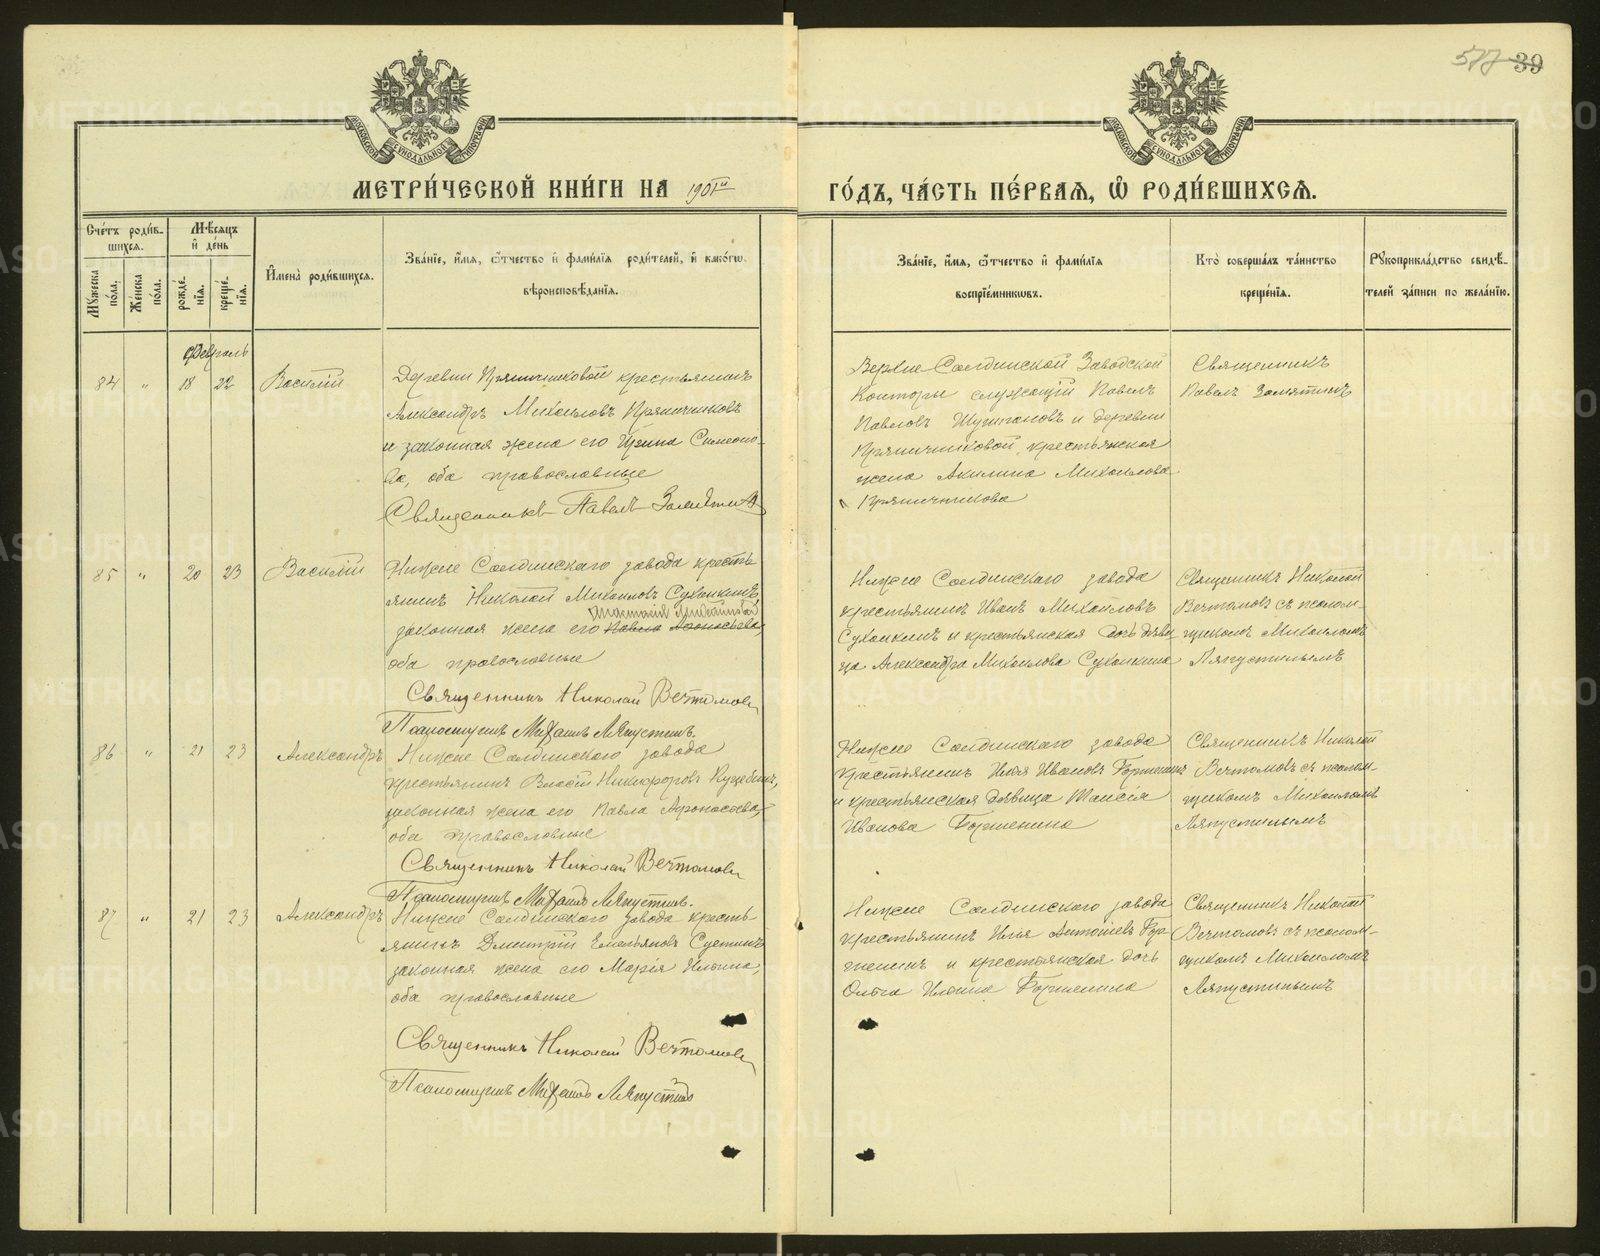 577 39
МЕТРИ́ЧЕСКОЙ КНИ́ГИ НА 1901й ГО́ДЪ, ЧА́СТЬ ПЕ́РВАЯ, Ѽ РОДИ́ВШИХСЯ.
Сче́тъ роди́вшихся.
Мѣ́сяцъ и҆ де́нь
Мꙋ́жеска по́ла.
Же́нска по́ла.
рожде́нїя.
креще́нїя.
И҆мена̀ роди́вшихся.
Зва́нїе, и҆́мя, ѻ҆́тчество и҆ фами́лїя роди́телей, и҆ како́гѡ вѣроисповѣ́данїя.
Зва́нїе, и҆́мя, ѻ҆́тчество и҆ фами́лїя воспрїе́мникѡвъ.
Кто̀ соверша́лъ та́инство креще́нїя.
Рꙋкоприкла́дство свидѣ́телей за́писи по жела́нїю.
Февраль
84 " 18 22 Василій
Деревни Пряничниковой крестьянинъ
Александръ Михаиловъ Пряничниковъ
и законная жена его Ирина Симеоно-
ва, оба православные
Священникъ Павелъ Замятинъ
Верхне Салдинской Заводской
Конторы служащій Павелъ
Павловъ Шушпановъ и деревни
Пряничниковой, крестьянская
жена Акилина Михаилова
Пряничникова
Священникъ
Павелъ Замятинъ
85 " 20 23 Василій
Нижне Салдинскаго завода кресть
янинъ Николай Михаиловъ Сухаикинъ,
законная жена его Павла Афонасьева,
оба православные
Священникъ Николай Вечтомовъ
Псаломщикъ Михаилъ Ляпустинъ.
Нижне Салдинскаго завода
крестьянинъ Иванъ Михайловъ
Сухаикинъ и крестьянская дочь дѣви
ца Александра Михаилова Сухаикина
Священникъ Николай
Вечтомовъ съ псалом-
щикомъ Михаиломъ
Ляпустинымъ
86 " 21 23 Александръ
Нижне Салдинскаго завода
крестьянинъ Власій Никифоровъ
законная жена его Павла Афонасьева,
оба православные
Священникъ Николай Вечтомовъ
Псаломщикъ Михаилъ Ляпустинъ.
Нижне Салдинскаго завода
крестьянинъ Илія Ивановъ Горшенинъ
и крестьянская дѣвица Таисія
Иванова Горшенина
Священникъ Николай
Вечтомовъ съ псалом-
щикомъ Михаиломъ
Ляпустинымъ
87 " 21 23 Александръ
Нижне Салдинскаго завода кресть
янинъ Дмитрій Емельяновъ Суетинъ
законная жена его Марія Ильина,
оба православные
Священникъ Николай Вечтомовъ
Псаломщикъ Михаилъ Ляпустинъ
Нижне Салдинскаго завода
крестьянинъ Илья Антоніевъ Гор
шенинъ и крестьянская дочь
Ольга Ильина Горшенина
Священникъ Николай
Вечтомовъ съ псалом-
щикомъ Михаиломъ
Ляпустинымъ
METRIKI.GASO-URAL.RU